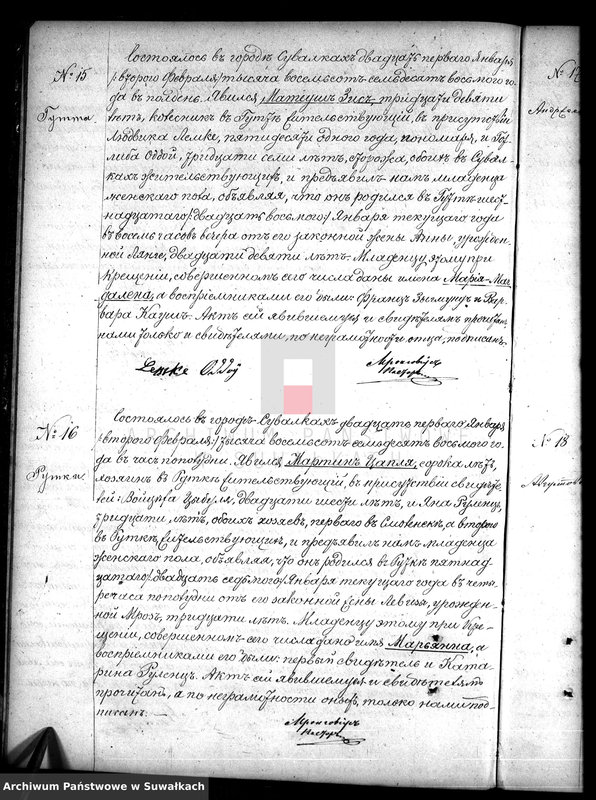 № 15
Гутта.
Состоялось въ городѣ Сувалкахъ двадцать перваго Января
/второго Февраля/ тысяча восемьсотъ семьдесятъ восьмого го-
да въ полдень. Явился Матеушъ Зисъ, тридцати девяти
лѣтъ, колесникъ въ Гуттѣ жительствующій, въ присутствіи
Людвика Лемке, пятидесяти одного года, пономаря, и
Оддой, тридцати семи лѣтъ, сторожа, обоихъ въ Сувал-
кахъ жительствующихъ, и предъявилъ намъ младенца
женскаго пола, объявляя, что онъ родился въ Гуттѣ шест-
надцатаго /двадцать восьмого/ Января текущаго года
въ восемь часовъ вечера отъ его законной жены Анны, урожден-
ной Лянге, двадцати девяти лѣтъ. Младенцу этому при
крещеніи, совершенномъ сего числа даны имена Марія-Маг-
далена, а воспріемниками его были: Францъ и Вар-
вара Каушъ. Актъ сей явившемуся и свидѣтелямъ прочитанъ,
нами только и свидѣтелями, по неграмотности отца, подписанъ.
Lemke
Пасторъ
№ 16
Рутки.
Состоялось въ городѣ Сувалкахъ двадцать перваго Января
/второго Февраля/ тысяча восемьсотъ семьдесятъ восьмого го-
да въ часъ пополудни. Явился Мартинъ Цапля, сорока лѣтъ,
хозяинъ въ Руткѣ жительствующій, въ присутствіи свидѣте-
лей: Войцѣха двадцати шести лѣтъ, и Яна Руленцъ,
тридцати лѣтъ, обоихъ хозяевъ, перваго въ а второго
въ Руткѣ жительствующихъ, и предъявилъ намъ младенца
женскаго пола, объявляя, что онъ родился въ Руткѣ пятнад-
цатаго /двадцать седьмого/ Января текущаго года въ четы-
ре часа пополудни отъ его законной жены Левизы, урожден-
ной Мрозъ, тридцати лѣтъ. Младенцу этому при кре-
щеніи, совершенномъ сего числа дано имя Марьянна, а
воспріемниками его были: первый свидѣтель и Ката-
рина Руленцъ. Актъ сей явившемуся и свидѣтелямъ
прочитанъ, а по неграмотности оныхъ, только нами под-
писанъ.
Пасторъ
№ 17
№ 18
Archiwum Państwowe w Suwałkach